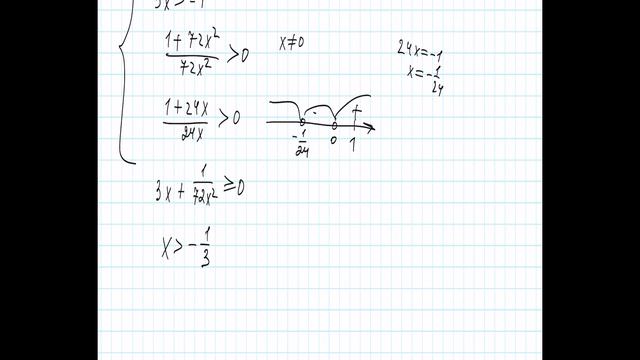 3x > -1
1 + 72x²/72x² > 0
x ≠ 0
24x = -1
x = -1/24
1 + 24x/24x > 0
+
-1/24 0 1
3x + 1/72x² ≥ 0
x > -1/3